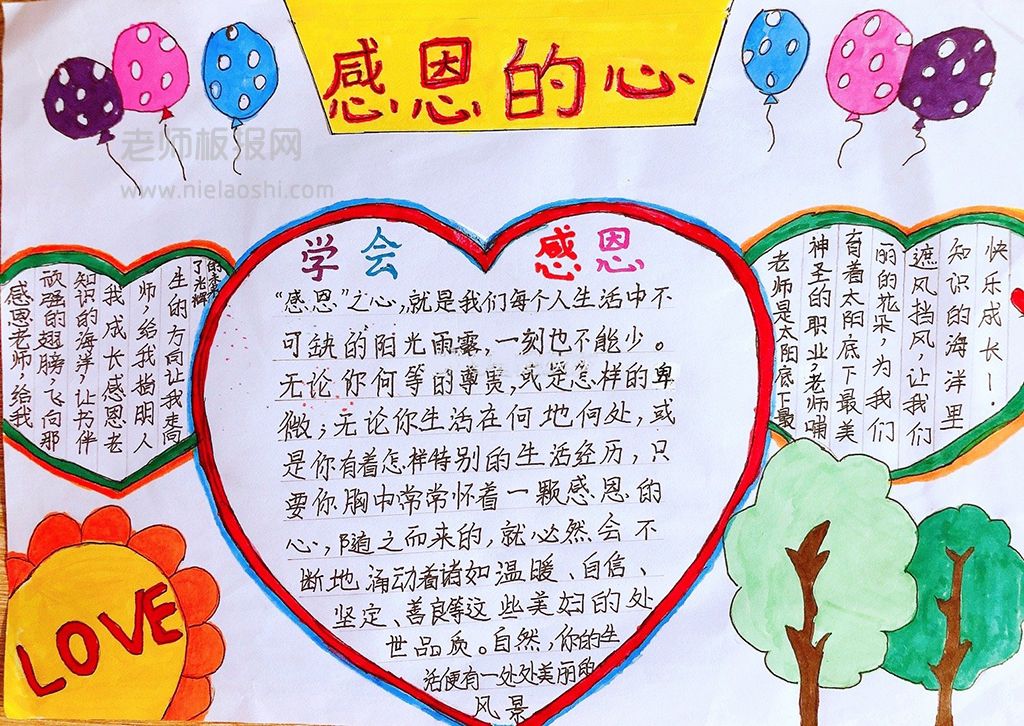 感恩的心
老师板报网
www.nielaoshi.com
学会 感恩
“感恩”之心,就是我们每个人生活中不
可缺的阳光雨露,一刻也不能少。
无论你何等的尊贵,或是怎样的卑
微；无论你生活在何地何处,或
是你有着怎样特别的生活经历,只
要你胸中常常怀着一颗感恩的
心,随之而来的,就必然会不
断地涌动着诸如温暖、自信、
坚定、善良等这些美妇的处
世品质。自然,你的生
活便有一处处美丽的
风景
感恩老师,给我
顽强的翅膀,飞向那
知识的海洋,让书伴
我成长感恩老
师,给我指明人
生的方向让我走向
了光辉
的未来
老师是太阳底下最
神圣的职业,老师哺
育着太阳底下最美
丽的花朵,为我们
遮风挡风,让我们
知识的海洋里
快乐成长!
LOVE